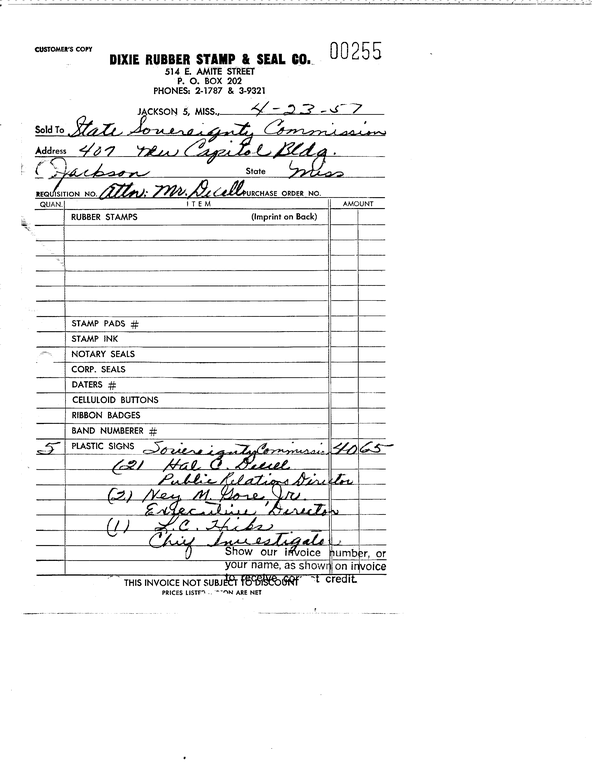 CUSTOMER'S COPY
00255
DIXIE RUBBER STAMP & SEAL CO.
514 E. AMITE STREET
P. O. BOX 202
PHONES: 2-1787 & 3-9321
JACKSON 5, MISS., 4-23-57
Sold To State Sovereignty Commission
Address 407 New Capitol Bldg.
Jackson State Miss
REQUISITION NO. Attn: Mr. Decell PURCHASE ORDER NO.
QUAN. ITEM AMOUNT
RUBBER STAMPS (Imprint on Back)
STAMP PADS #
STAMP INK
NOTARY SEALS
CORP. SEALS
DATERS #
CELLULOID BUTTONS
RIBBON BADGES
BAND NUMBERER #
5 PLASTIC SIGNS Sovereignty Commission 40 65
(2) Hal C. Decell
Public Relations Director
(2) Ney M. Gore, Jr.
Executive Director
(1) L.C. Hicks
Chief Investigator
Show our invoice number, or
your name, as shown on invoice
to receive credit.
THIS INVOICE NOT SUBJECT TO DISCOUNT
PRICES ARE NET